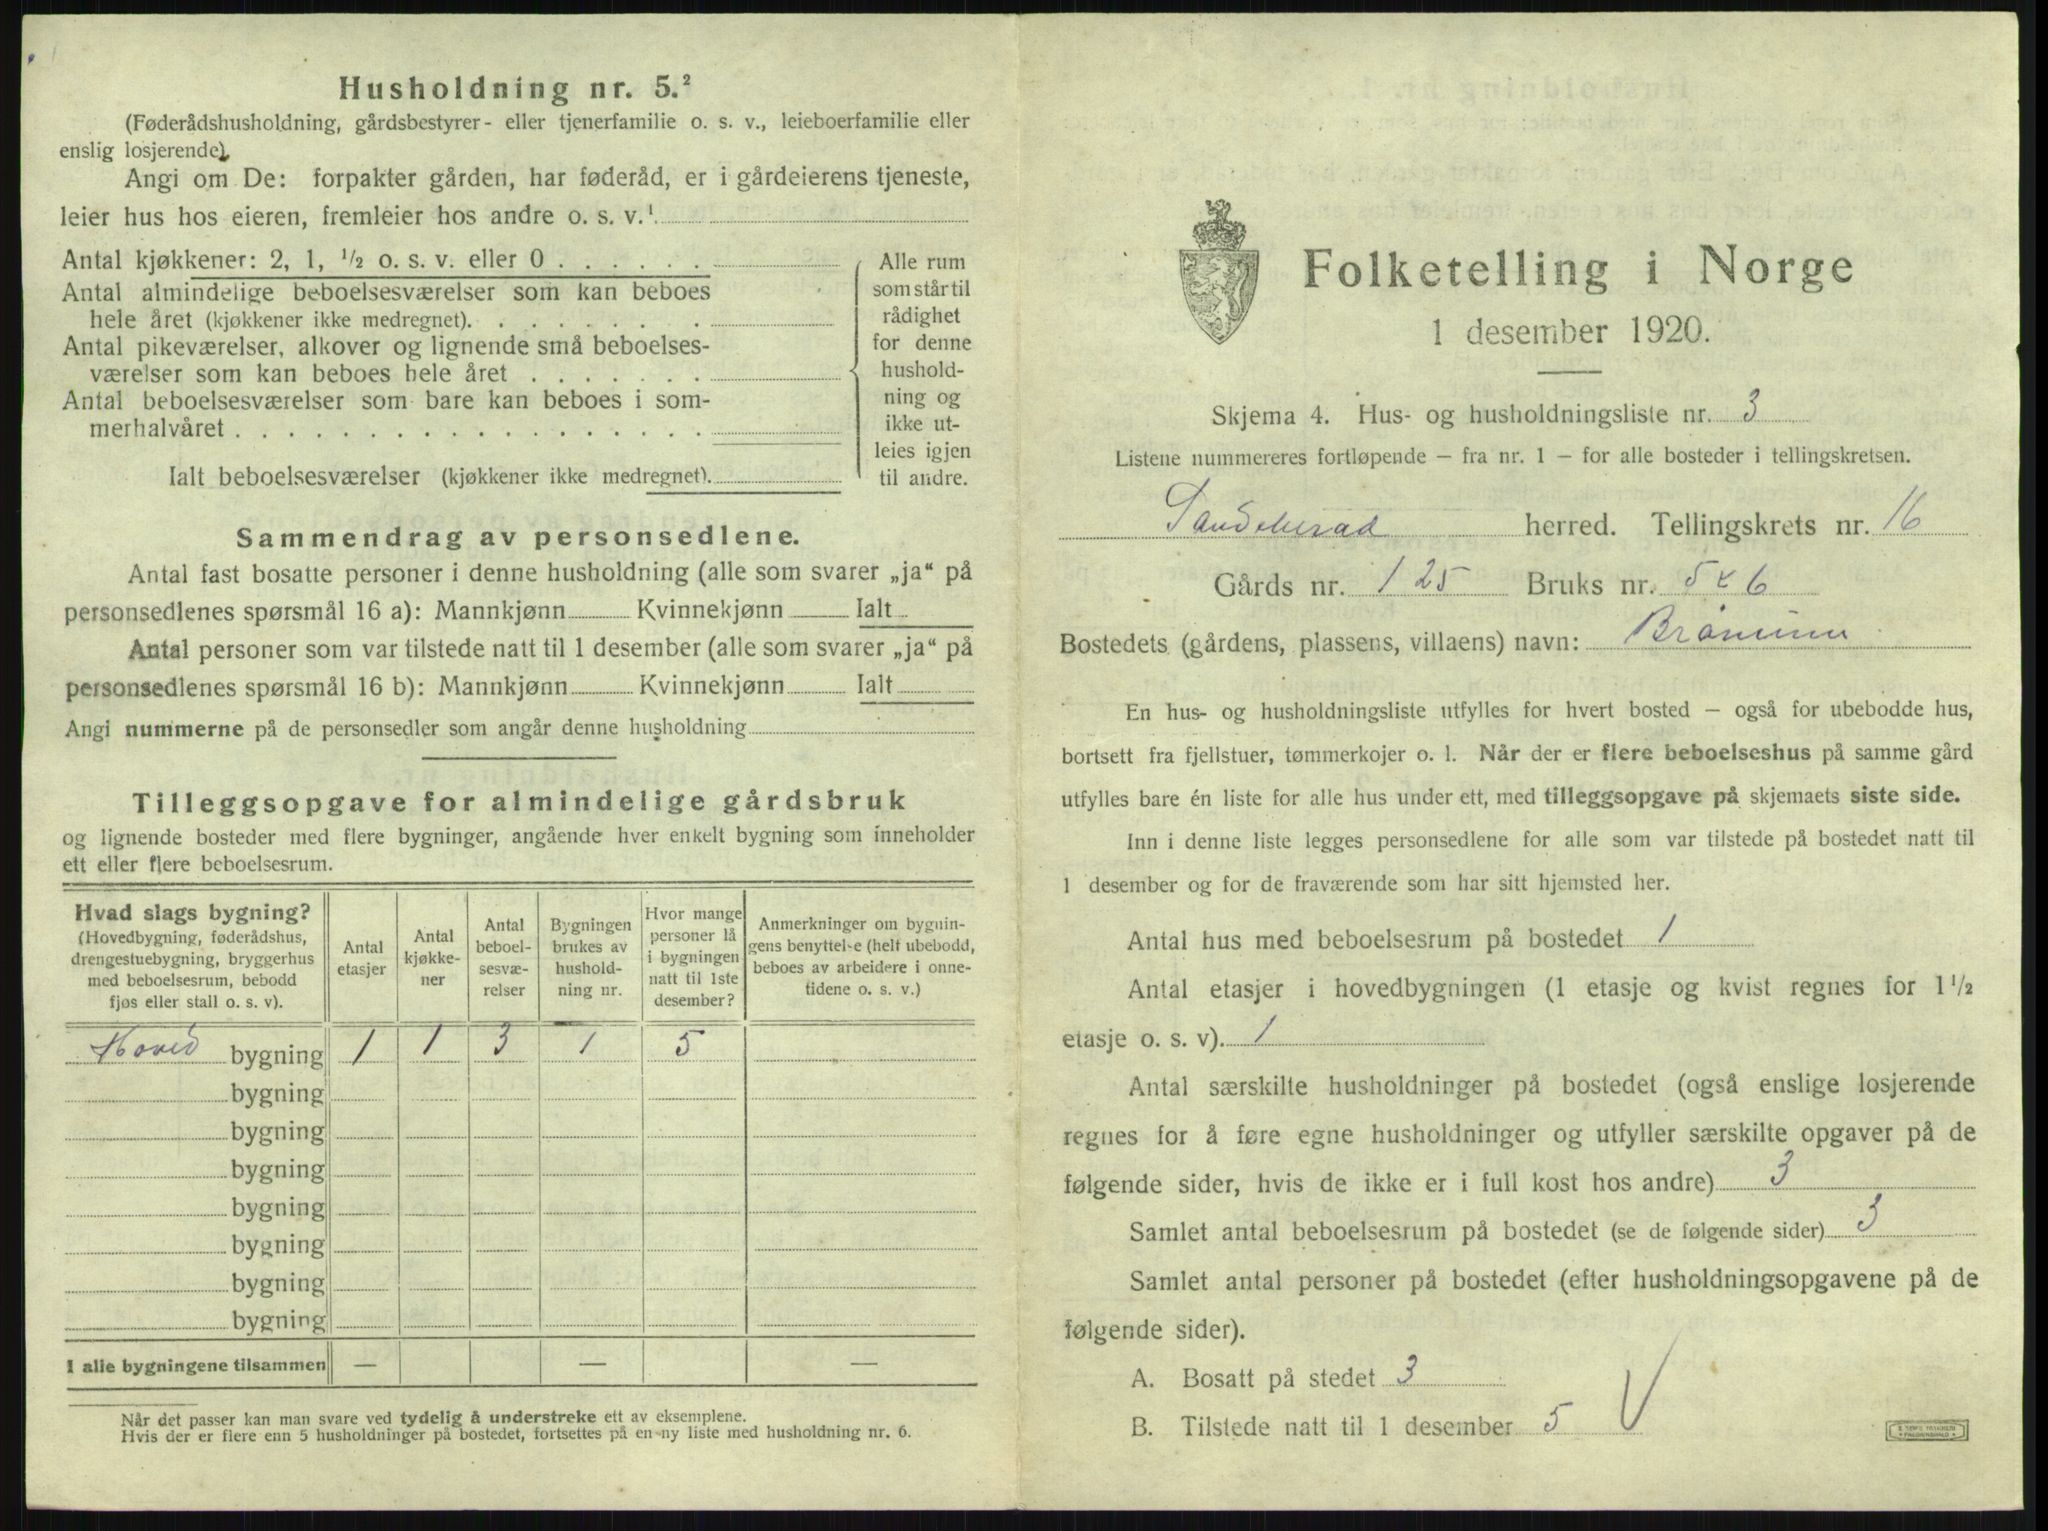 Husholdning nr. 5.²
(Føderådshusholdning, gårdsbestyrer- eller tjenerfamilie o. s. v., leieboerfamilie eller
enslig losjerende).
Angi om De: forpakter gården, har føderåd, er i gårdeierens tjeneste,
leier hus hos eieren, fremleier hos andre o. s. v.¹
Antal kjøkkener: 2, 1, ½ o. s. v. eller 0 . . . . . .
Antal almindelige beboelsesværelser som kan beboes
hele året (kjøkkener ikke medregnet). . . . . . . .
Antal pikeværelser, alkover og lignende små beboelses-
værelser som kan beboes hele året . . . . . . .
Antal beboelsesværelser som bare kan beboes i som-
merhalvåret . . . . . . . . . . . . . . . . . .
Ialt beboelsesværelser (kjøkkener ikke medregnet).
Alle rum
som står til
rådighet
for denne
hushold-
ning og
ikke ut-
leies igjen
til andre.
Sammendrag av personsedlene.
Antal fast bosatte personer i denne husholdning (alle som svarer „ja“ på
personsedlenes spørsmål 16 a): Mannkjønn Kvinnekjønn Ialt
Antal personer som var tilstede natt til 1 desember (alle som svarer „ja“ på
personsedlenes spørsmål 16 b): Mannkjønn Kvinnekjønn Ialt
Angi nummerne på de personsedler som angår denne husholdning
Tilleggsopgave for almindelige gårdsbruk
og lignende bosteder med flere bygninger, angående hver enkelt bygning som inneholder
ett eller flere beboelsesrum.
Hvad slags bygning?
(Hovedbygning, føderådshus,
drengestuebygning, bryggerhus
med beboelsesrum, bebodd
fjøs eller stall o. s. v).
Antal
etasjer
Antal
kjøkke-
ner
Antal
beboel-
sesvæ-
relser
Bygningen
brukes av
hushold-
ning nr.
Hvor mange
personer lå
i bygningen
natt til 1ste
desember?
Anmerkninger om bygnin-
gens benyttelse (helt ubebodd,
beboes av arbeidere i onne-
tidene o. s. v.)
Hoved bygning 1 1 3 1 5
bygning
bygning
bygning
bygning
bygning
bygning
bygning
I alle bygningene tilsammen — — —
Når det passer kan man svare ved tydelig å understreke ett av eksemplene.
Hvis der er flere enn 5 husholdninger på bostedet, fortsettes på en ny liste med husholdning nr. 6.
Folketelling i Norge
1 desember 1920.
Skjema 4. Hus- og husholdningsliste nr. 3
Listene nummereres fortløpende — fra nr. 1 — for alle bosteder i tellingskretsen.
Sandeherad herred. Tellingskrets nr. 16
Gårds nr. 125 Bruks nr. 5 & 6
Bostedets (gårdens, plassens, villaens) navn:
En hus- og husholdningsliste utfylles for hvert bosted — også for ubebodde hus,
bortsett fra fjellstuer, tømmerkojer o. l. Når der er flere beboelseshus på samme gård
utfylles bare én liste for alle hus under ett, med tilleggsopgave på skjemaets siste side.
Inn i denne liste legges personsedlene for alle som var tilstede på bostedet natt til
1 desember og for de fraværende som har sitt hjemsted her.
Antal hus med beboelsesrum på bostedet 1
Antal etasjer i hovedbygningen (1 etasje og kvist regnes for 1½
etasje o. s. v). 1
Antal særskilte husholdninger på bostedet (også enslige losjerende
regnes for å føre egne husholdninger og utfyller særskilte opgaver på de
følgende sider, hvis de ikke er i full kost hos andre) 3
Samlet antal beboelsesrum på bostedet (se de følgende sider) 3
Samlet antal personer på bostedet (efter husholdningsopgavene på de
følgende sider).
A. Bosatt på stedet 3
B. Tilstede natt til 1 desember 5